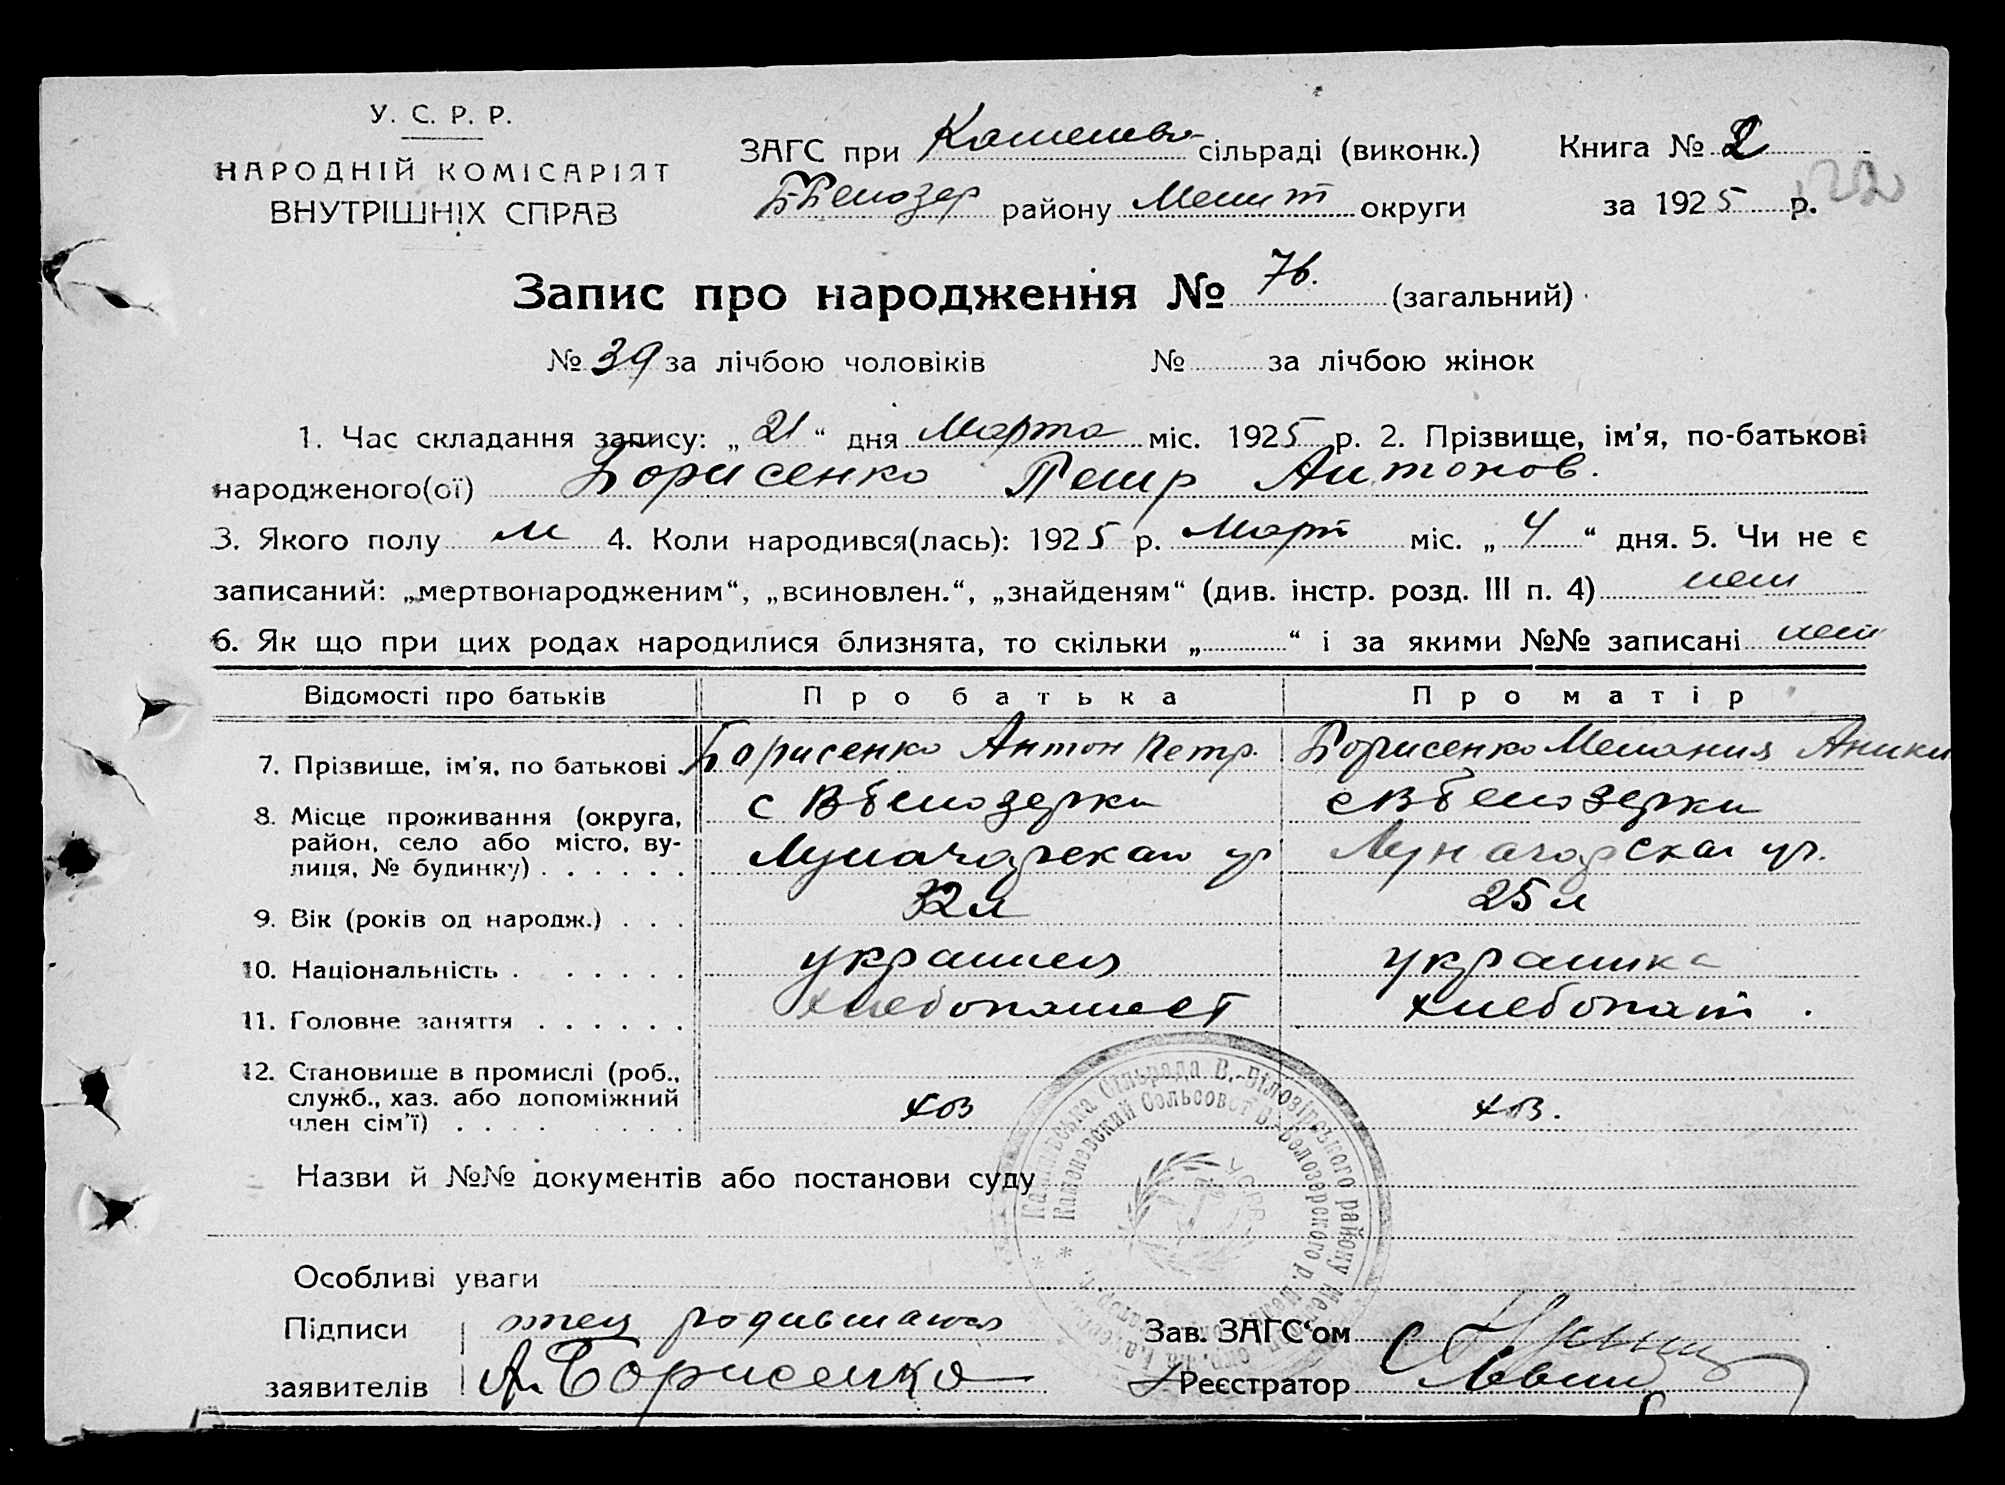 У. С. Р. Р.
НАРОДНІЙ КОМІСАРІЯТ
ВНУТРІШНІХ СПРАВ
ЗАГС при сільраді (виконк.)
району Мелит округи
Книга № 2
за 1925 р.
122
Запис про народження № 76. (загальний)
№ 39 за лічбою чоловіків № за лічбою жінок
1. Час складання запису: „ 21 “ дня Марта міс. 1925 р. 2. Прізвище, ім'я, по-батькові
народженого(ої) Борисенко Петр Антонов.
3. Якого полу м 4. Коли народився(лась): 1925 р. Март міс. „ 4 “ дня. 5. Чи не є
записаний: „мертвонародженим“, „всиновлен.“, „знайденям“ (див. інстр. розд. III п. 4) нет
6. Як що при цих родах народилися близнята, то скільки „ “ і за якими №№ записані нет
Відомості про батьків Про батька Про матір
7. Прізвище, ім'я, по батькові Борисенко Антон Петр. Борисенко Мелания Аники
8. Місце проживання (округа, с В Белозерки с В Белозерки
район, село або місто, ву-
лиця, № будинку) Луначарская ул Луначарская ул.
9. Вік (років од народж.) 32 л 25 л
10. Національність украинец украинка
11. Головне заняття хлебопашест хлебопаш
12. Становище в промислі (роб.,
служб., хаз. або допоміжний хоз хоз.
член сім'ї)
Назви й №№ документів або постанови суду
Кам'янівська Сільрада В.-Білозірського району
Каменевский Сельсовет В.-Белозерского р.
УСРР
Особливі уваги
Підписи отец родившагося Зав. ЗАГС'ом
заявителів А. Борисенко Реєстратор